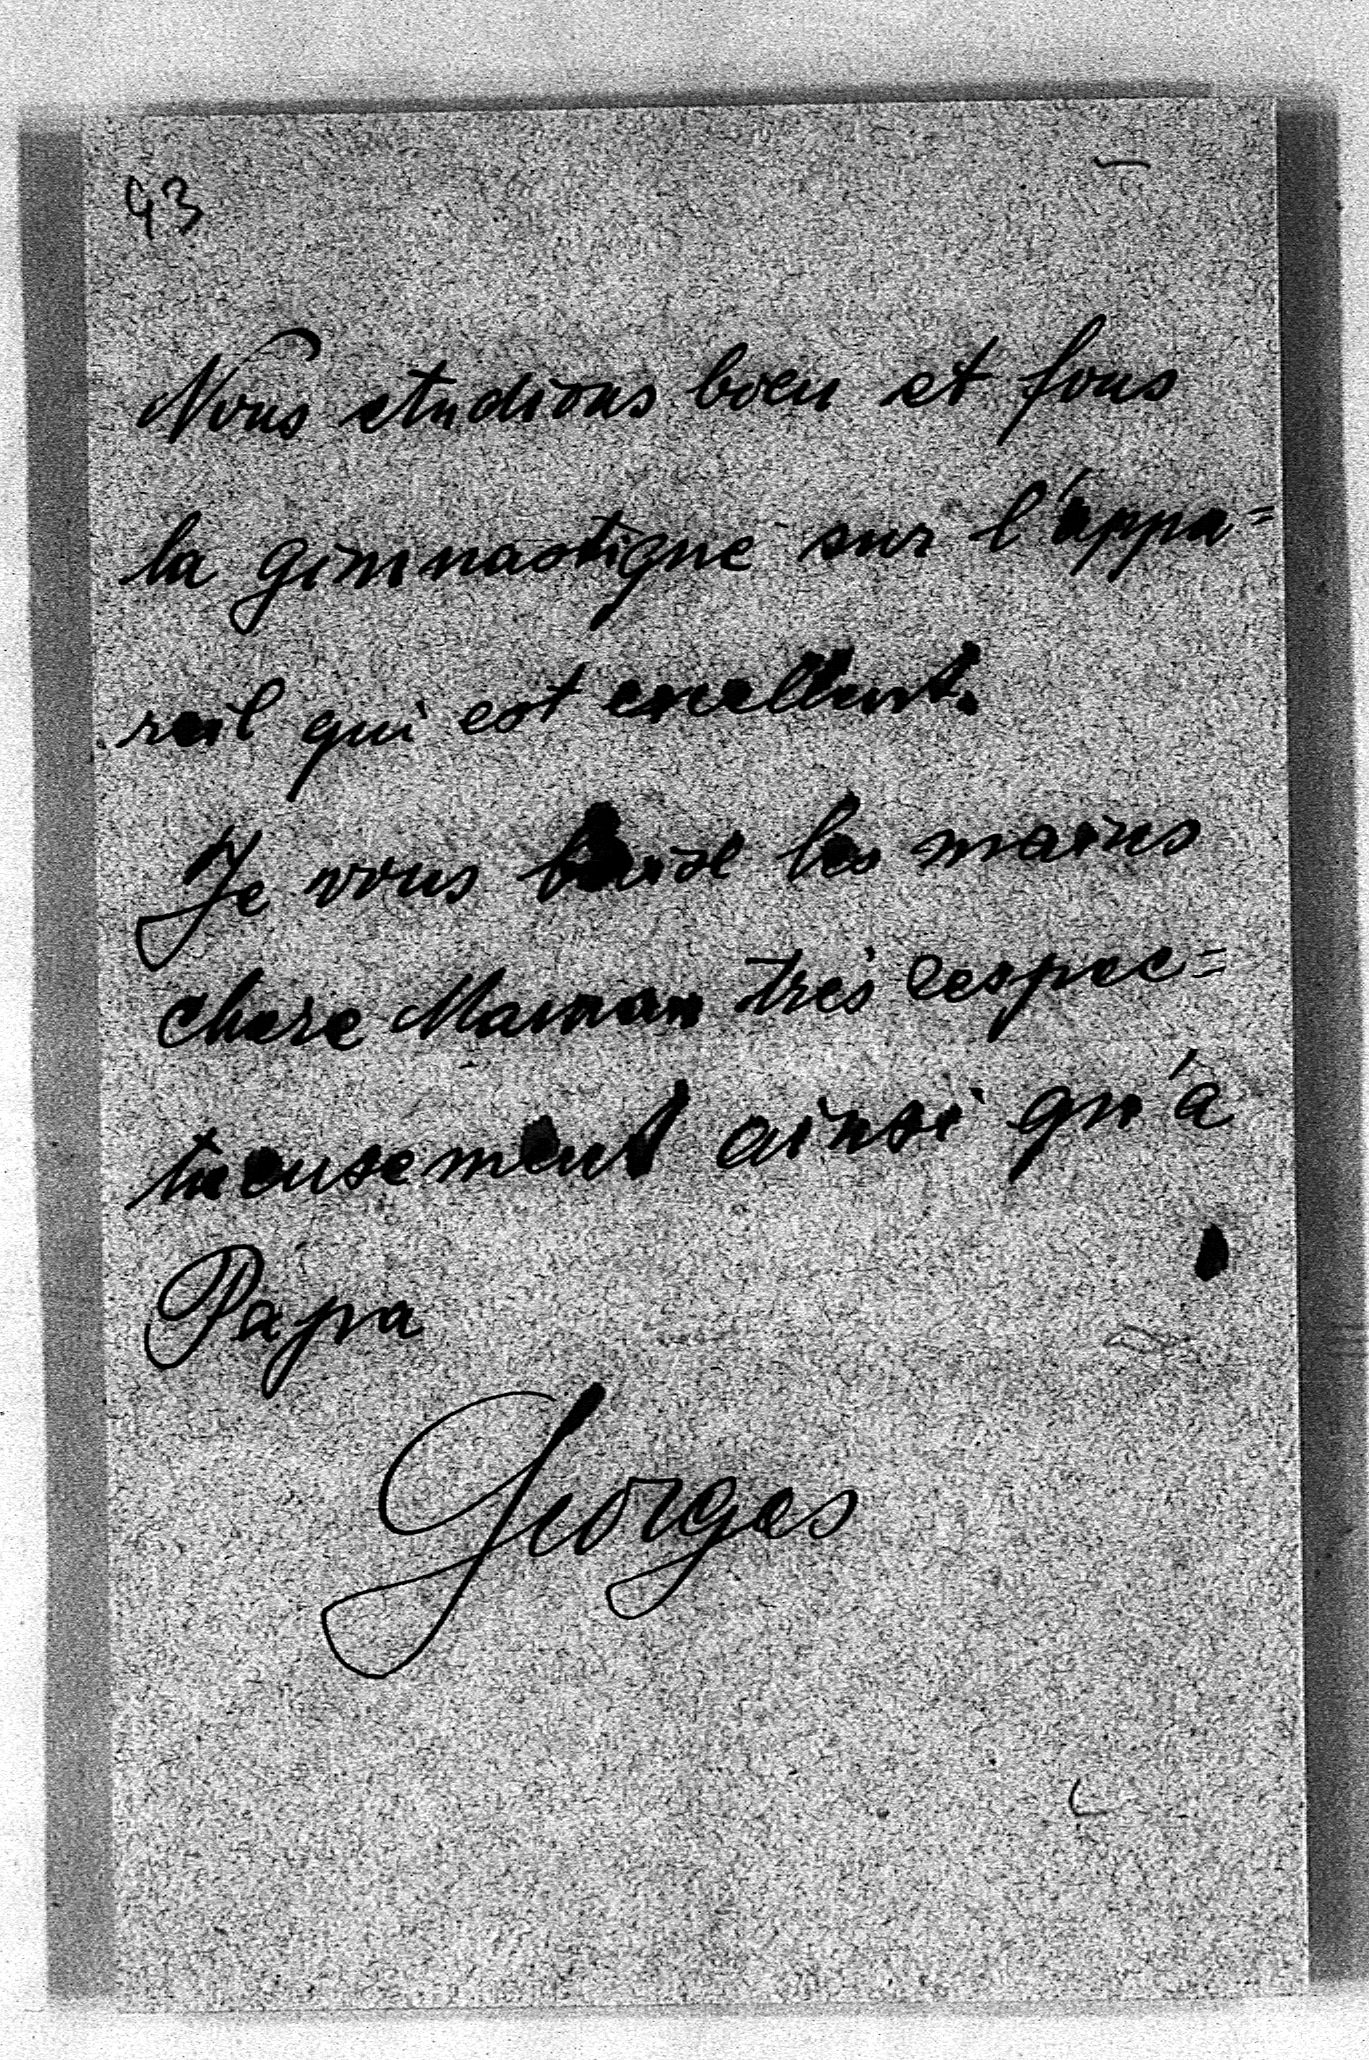 43
Nous etudions bien et fons
la gimnastique sur l'appa=
reil qui est excellent.
Je vous baise les mains
chere Maman trés respec=
tueusement ainsi qu'a
Papa
Georges